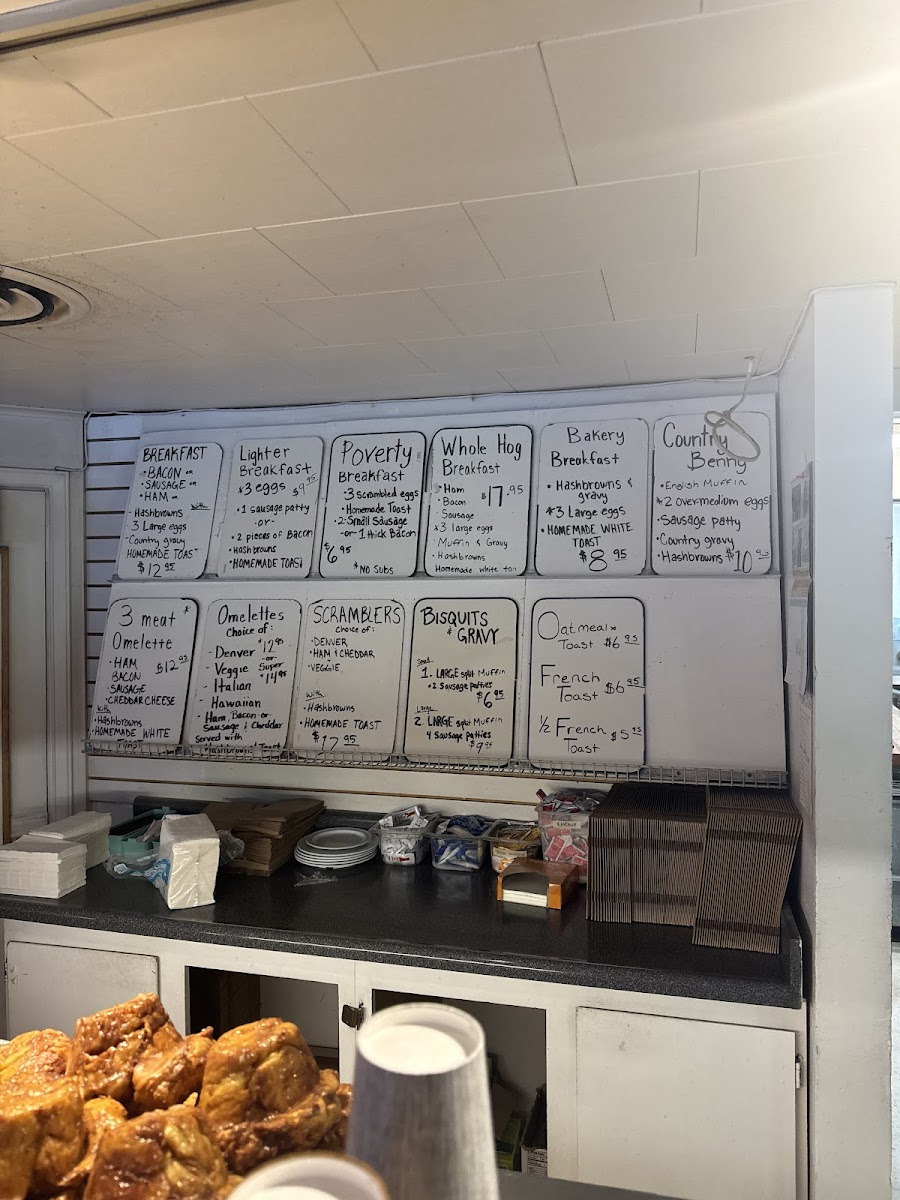 BREAKFAST
• BACON or
• SAUSAGE or
• HAM or
With
• Hashbrowns
3 Large eggs
• Country gravy
HOMEMADE TOAST
$12.95
Lighter
Breakfast
*3 eggs $9.95
• 1 sausage patty
-or-
• 2 pieces of Bacon
• Hashbrowns
• HOMEMADE TOAST
Poverty
Breakfast
• 3 scrambled eggs
• Homemade Toast
• 2 Small Sausage
-or 1 thick Bacon
$6.95
*NO SUBS
Whole Hog
Breakfast
• Ham $17.95
• Bacon
• Sausage
*3 large eggs
Muffin & Gravy
• Hashbrowns
Homemade white
Bakery
Breakfast
• Hashbrowns &
gravy
*3 Large eggs
• HOMEMADE WHITE
TOAST
$8.95
Country
Benny
• English Muffin
*2 overmedium eggs
• Sausage patty
• Country gravy
• Hashbrowns $10
3 meat *
Omelette
• HAM $12.95
BACON
• SAUSAGE
• CHEDDAR CHEESE
With
• Hashbrowns
• HOMEMADE WHITE
TOAST
Omelettes
Choice of:
- Denver $12.95
-or-
- Veggie Super
- Italian $14.95
- Hawaiian
- Ham Bacon or
Sausage & Cheddar
Served with
Hashbrowns Toast
SCRAMBLERS
Choice of:
• DENVER
• HAM & CHEDDAR
• VEGGIE
With
• Hashbrowns
• HOMEMADE TOAST
$12.95
BISQUITS
& GRAVY
Small
1. LARGE split Muffin
• 2 Sausage patties
$6.95
Large
2. LARGE split Muffin
4 Sausage patties
$9.95
Oatmeal &
Toast $6.95
French
Toast $6.95
1/2 French
Toast $5.75